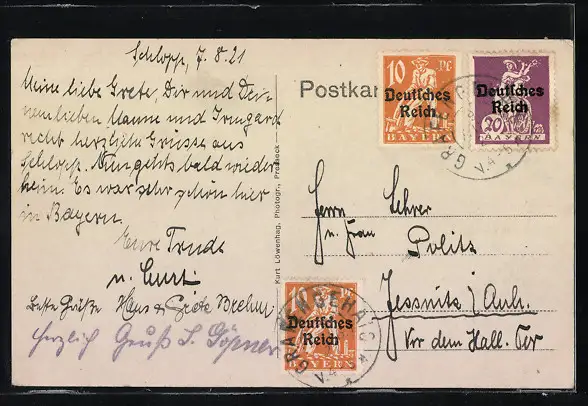 Schlopp, 7.8.21
Meine liebe Grete, Dir und Dei-
nem lieben Manne und Irmgard
recht herzliche Grüsse aus
Schlopp. Nun geht's bald wieder
heim. Es war sehr schön hier
in Bayern.
Eure Trude
u. Curt
Beste Grüße Hans & Grete Brehm
Herzlich Gruß
Postkar
Kurt Löwenhag, Photogr., Presseck
10 Pf
Deutsches
Reich
BAYERN
Deutsches
Reich
20
BAYERN
Herrn Lehrer
u. Frau
Politz
Jessnitz / Anh.
Vor dem Hall. Tor
10
Deutsches
Reich
BAYERN
GRAFENGEHAIG